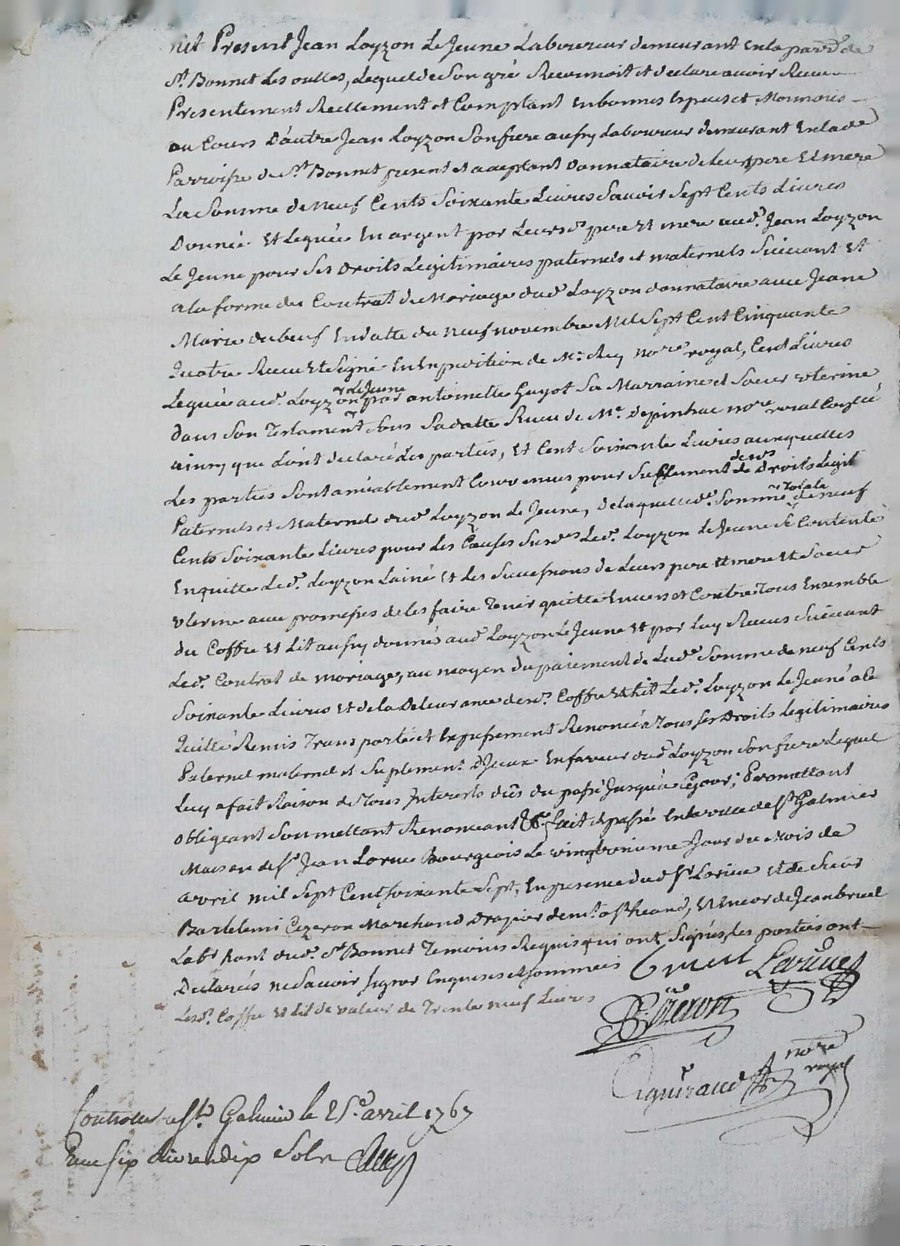 nit Present Jean Loyzon Le Jeune Laboureur demeurant En la parr.e de
St. Bonnet Les oulles, Lequel de Son gré Reconnoit et declare avoir Recu
Presentement Reellement et Comptant En bonnes Especes et Monnoies
au Cours D'autre Jean Loyzon Son frere aussy Laboureur demeurant En lade
Parroisse de St. Bonnet present et acceptant Donnataire de Leur pere Et mere
La Somme de Neuf Cents Soixante Livres Savoir Sept Cents Livres
Donnée Et Leguée En argent par Leursd. pere Et mere aud. Jean Loyzon
Le Jeune pour Ses Droits Legitimaires paternels et maternels Suivant Et
a la forme du Contrat de Mariage dud. Loyzon donnataire avec Jeane
Marie dubeuf En datte du neuf novembre Mil Sept Cent Cinquante
Quatre Recu Et Signé En Expedition de Me. Rey nore. royal, Cent Livres
Leguée aud. Loyzon Le Jeune par antoinette Guyot Sa Marraine et Soeur Uterine
dans Son Testament Sous Sa datte Recu de Me. Depinhac nore. roial
ainsy que L'ont declaré Les parties, Et Cent Soixante Livres auxquelles
Les parties Sont améablement Convenues pour Suplement de sesd. Droits Legit.
Paternels et Maternels dud. Loyzon Le Jeune, de laquelled. Somme Totale de neuf
Cents Soixante Livres pour Les Causes Susd. Led. Loyzon Le Jeune Se Contente
En quitte Led. Loyzon Lainé Et Les Successions de Leurs pere Et mere Et Soeur
Uterine aux promesses de les faire Tenir quitte Envers et Contre Tous Ensemble
du Coffre Et Lit aussy donnés aud. Loyzon Le Jeune Et par Luy Recus Suivant
Led. Contrat de Mariage, au moyen du paiement de Lad. Somme de neuf Cents
Soixante Livres Et de la Delivrance desd. Coffre Et Lit Led. Loyzon Le Jeune a Cé
Quitté Remis Transporté et Expressement Renoncé a Tous Ses Droits Legitimaires
Paternel maternel et Suplement D'iceux En faveur dud. Loyzon Son frere Lequel
Luy a fait Raison de Tous Interests dûs du passé Jusqu'a Cejour;
obligeant Soumettant Renonceant &c. fait et passé En la ville de St. Galmier
Maison de Sr. Jean Bourgeois Le vingtrieme Jour du Mois de
avril mil Sept Cent soixante Sept, En presence dud. Sr. et de Sieur
Barthelemi Cizeron Marchand Drapier Et Encor de Jean
Labt. dud. St. Bonnet Temoins Requis qui ont Signés, Les parties ont
Declarés ne Savoir Signer Enquises et Sommées
Lesd. Coffre Et Lit de valeur de Trente neuf Livres
Cizeron
nore royal
Controllé a St. Galmier le 25e. avril 1767
Recu six livres dix Sols